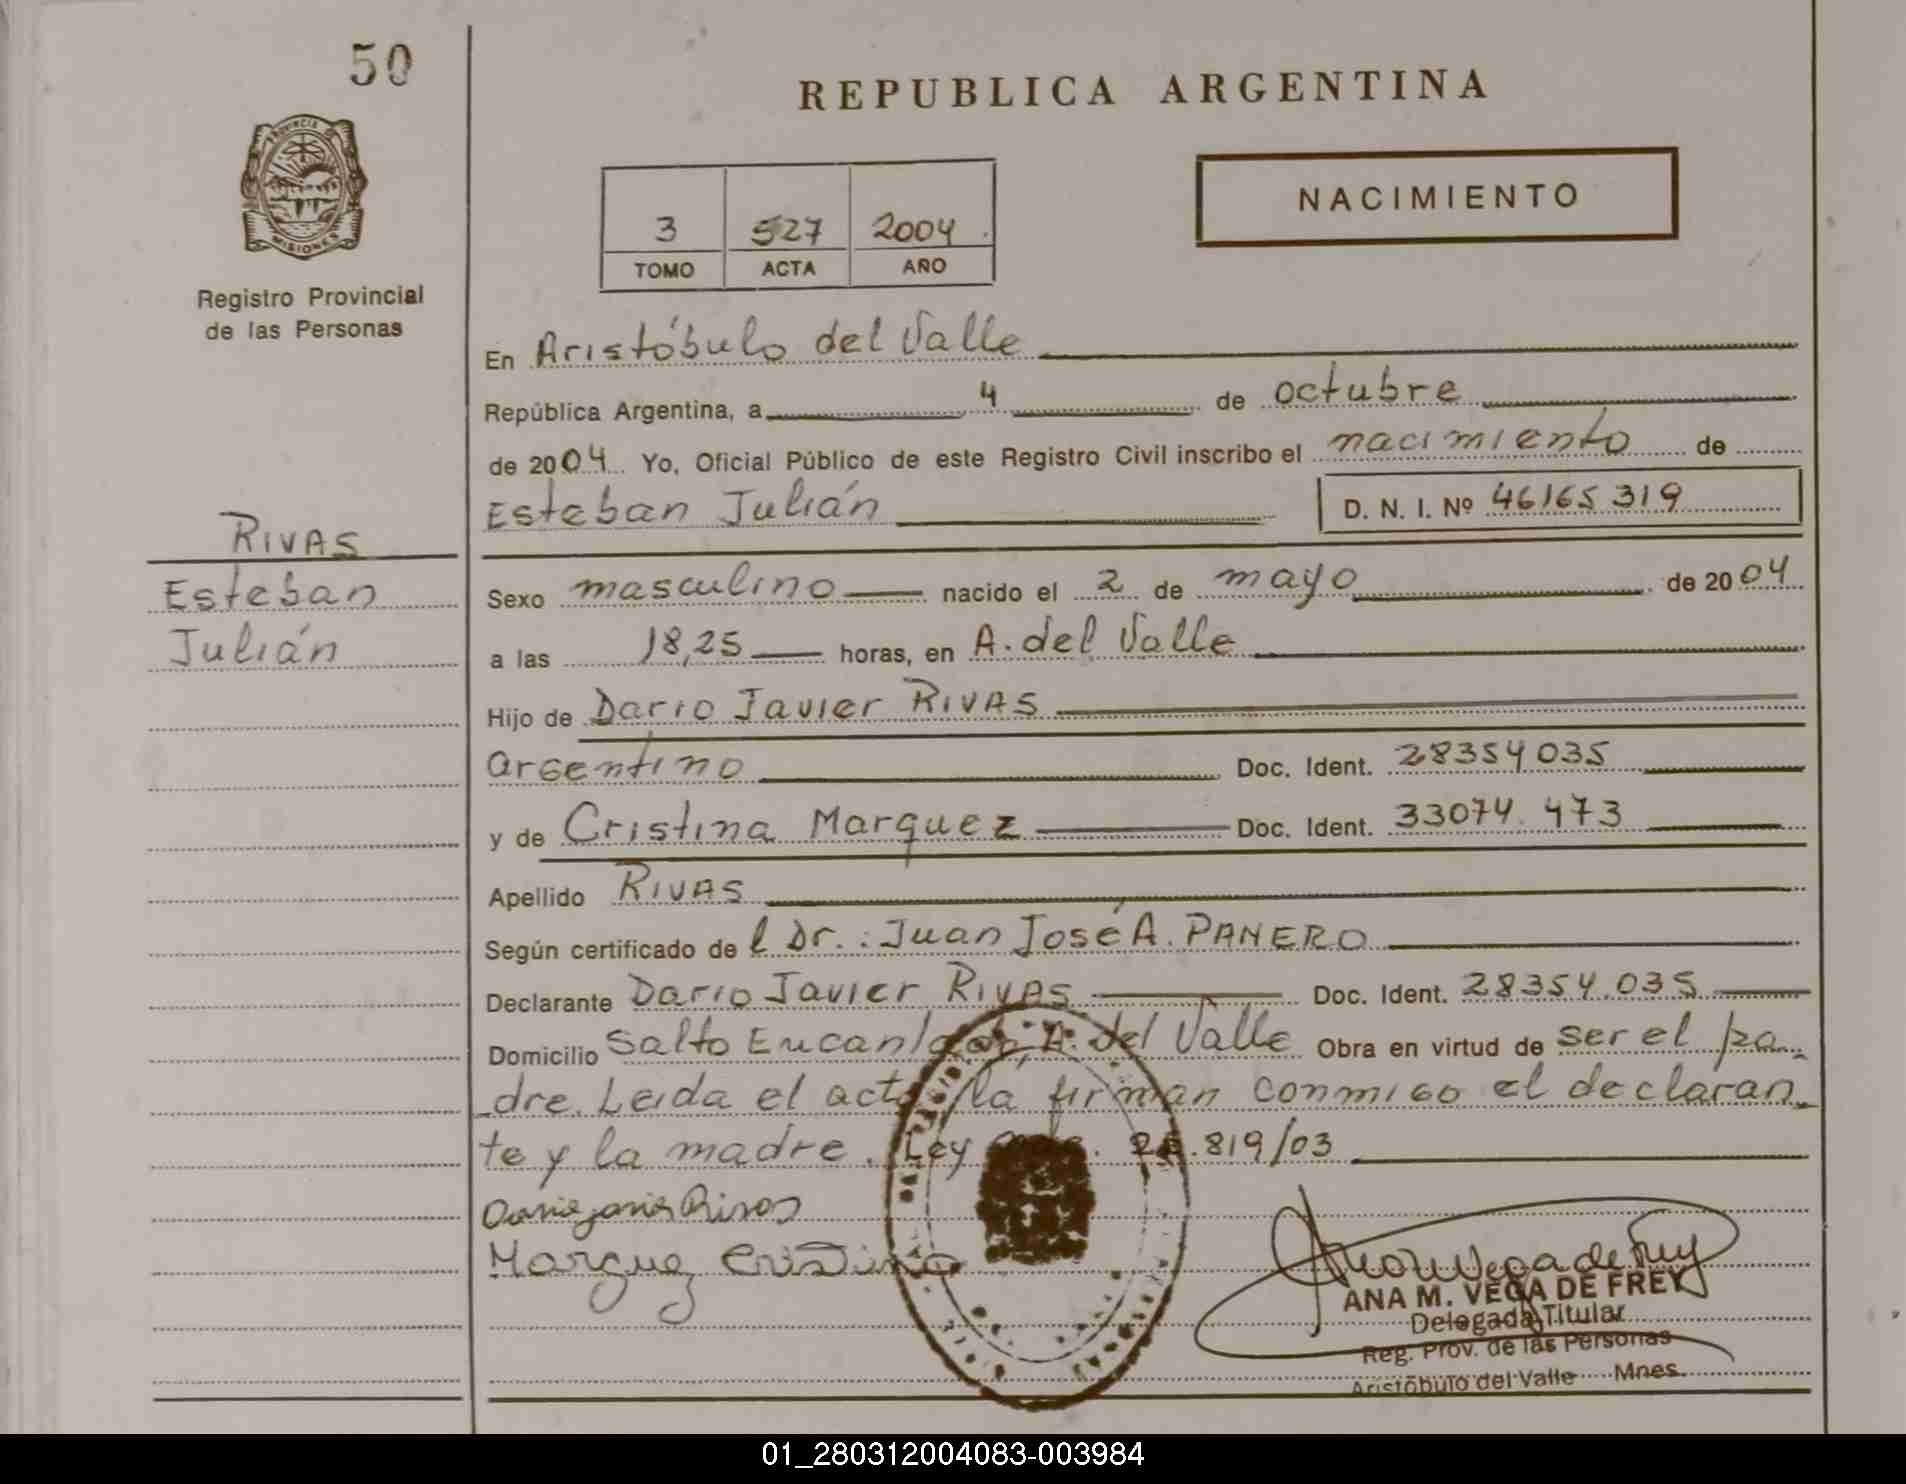 50
REPUBLICA ARGENTINA
NACIMIENTO
PROVINCIA DE
MISIONES
Registro Provincial
de las Personas
3 527 2004
TOMO ACTA AÑO
En Aristóbulo del Valle
República Argentina, a 4 de octubre
de 2004 Yo, Oficial Público de este Registro Civil inscribo el nacimiento de
Esteban Julián D. N. I. Nº 46165 319
RIVAS
Esteban
Julián
Sexo masculino nacido el 2 de mayo de 2004
a las 18,25 horas, en A. del Valle
Hijo de Dario Javier RIVAS
argentino Doc. Ident. 28354035
y de Cristina Marquez Doc. Ident. 33074.473
Apellido RIVAS
Según certificado de l Dr.: Juan José A. PANERO
Declarante Dario Javier RIVAS Doc. Ident. 28354.035
Domicilio Salto Encantado, A. del Valle Obra en virtud de ser el pa-
dre. Leida el acta la firman conmigo el declaran-
te y la madre. Ley .819/03
Dario Javier Rivas
Marquez Cristina
ANA M. VEGA DE FREY
Delegada Titular
Reg. Prov. de las Personas
Aristóbulo del Valle Mnes.
01_280312004083-003984